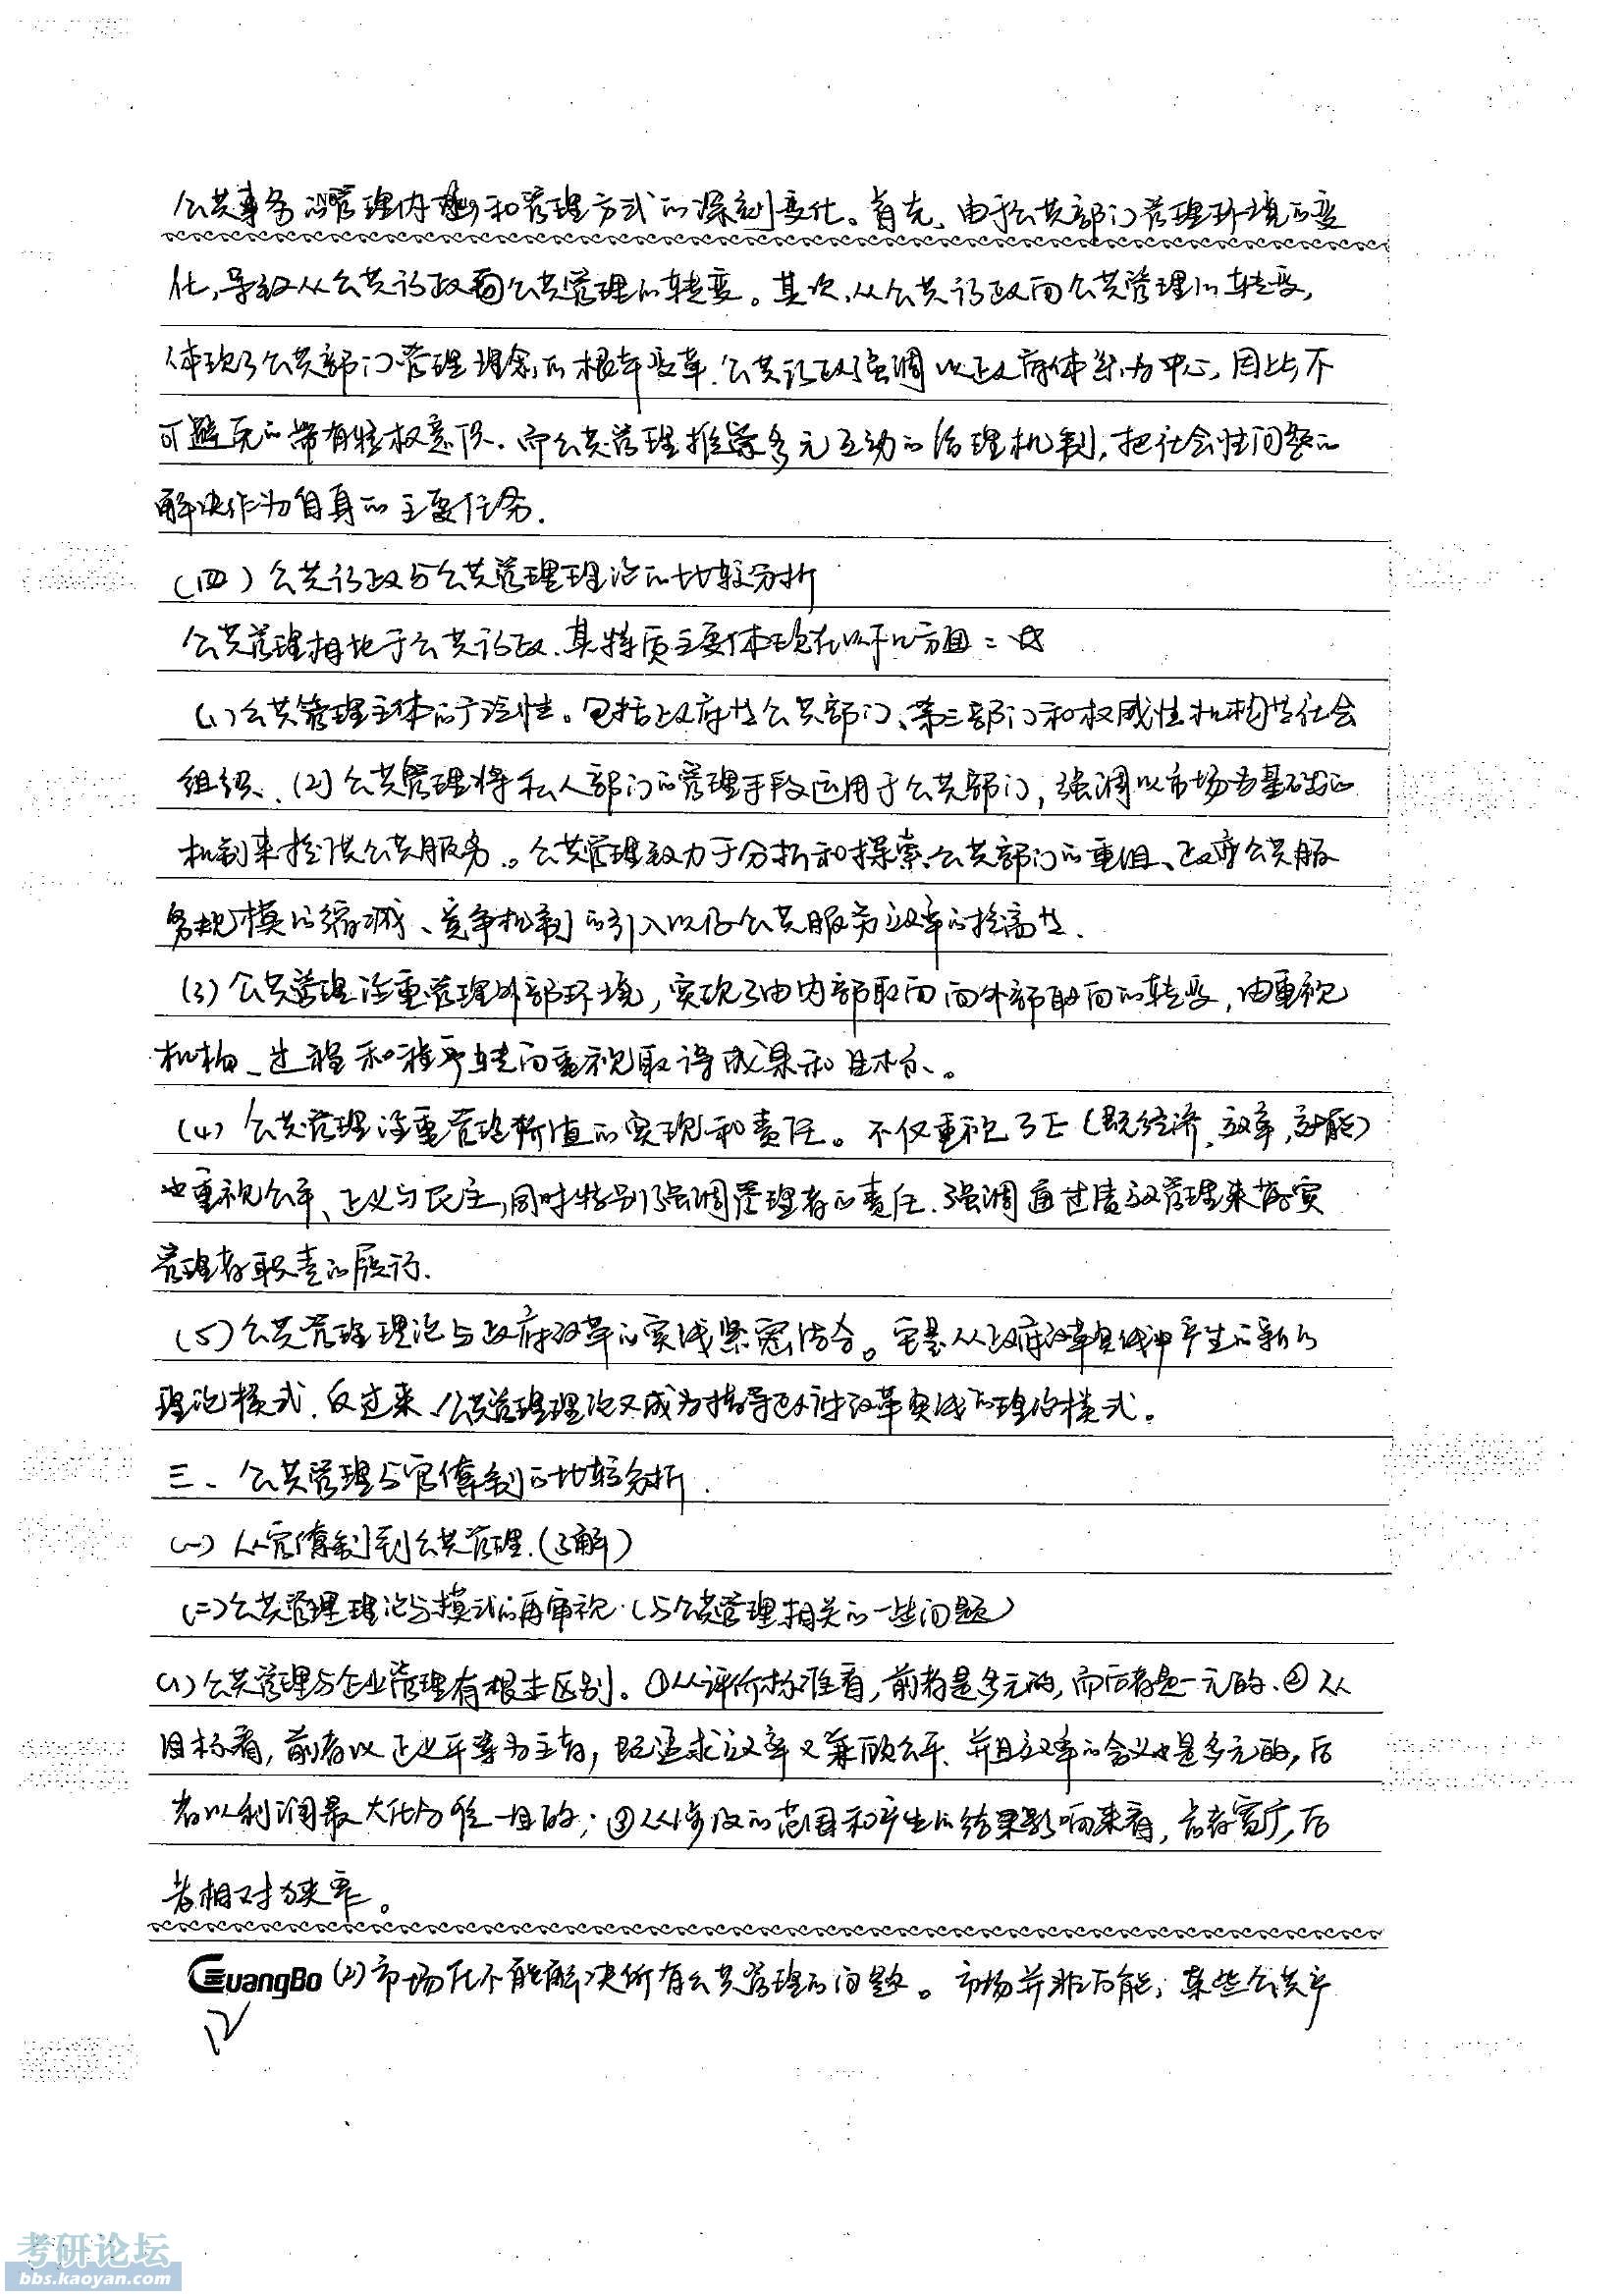 公共事务的管理内容和管理方式的深刻变化。首先，由于公共部门管理环境的变
化，导致从公共行政向公共管理的转变。其次，从公共行政向公共管理的转变，
体现了公共部门管理理念的根本变革。公共行政强调以政府体系为中心，因此不
可避免的带有特权意识。而公共管理推崇多元互动的治理机制，把社会性问题的
解决作为自身的主要任务。
（四）公共行政与公共管理理论的比较分析
公共管理相比于公共行政，其特质主要体现在以下几方面：
（1）公共管理主体的广泛性。包括政府性公共部门、第三部门和权威性机构性社会
组织。（2）公共管理将私人部门的管理手段运用于公共部门，强调以市场为基础的
机制来提供公共服务。公共管理致力于分析和探索公共部门的重组、政府公共服
务规模的缩减、竞争机制的引入以及公共服务效率的提高等。
（3）公共管理注重管理外部环境，实现了由内部取向向外部取向的转变，由重视
机构、过程和程序转向重视取得成果和目标。
（4）公共管理注重管理价值的实现和责任。不仅重视了E（既经济，效率，效能）
也重视公平、正义与民主，同时特别强调管理者的责任，强调通过绩效管理来落实
管理者职责的履行.
（5）公共管理理论与政府改革的实践紧密结合。它是从政府改革实践中产生的新的
理论模式，反过来，公共管理理论又成为指导政府改革实践的理论模式。
三、公共管理与官僚制的比较分析.
（一）从官僚制到公共管理.（了解）
（二）公共管理理论与模式的再审视.（与公共管理相关的一些问题）
（1）公共管理与企业管理有根本区别。①从评价标准看，前者是多元的，而后者是一元的、②从
目标看，前者以正义平等为主旨，既追求效率又兼顾公平、并且效率的含义也是多元的，后
者以利润最大化为唯一目的；③从涉及的范围和产生的结果影响来看，前者宽广，后
者相对狭窄。
GuangBo（2）市场化不能解决所有公共管理的问题。市场并非万能，某些公共产
12
考研论坛
bbs.kaoyan.com